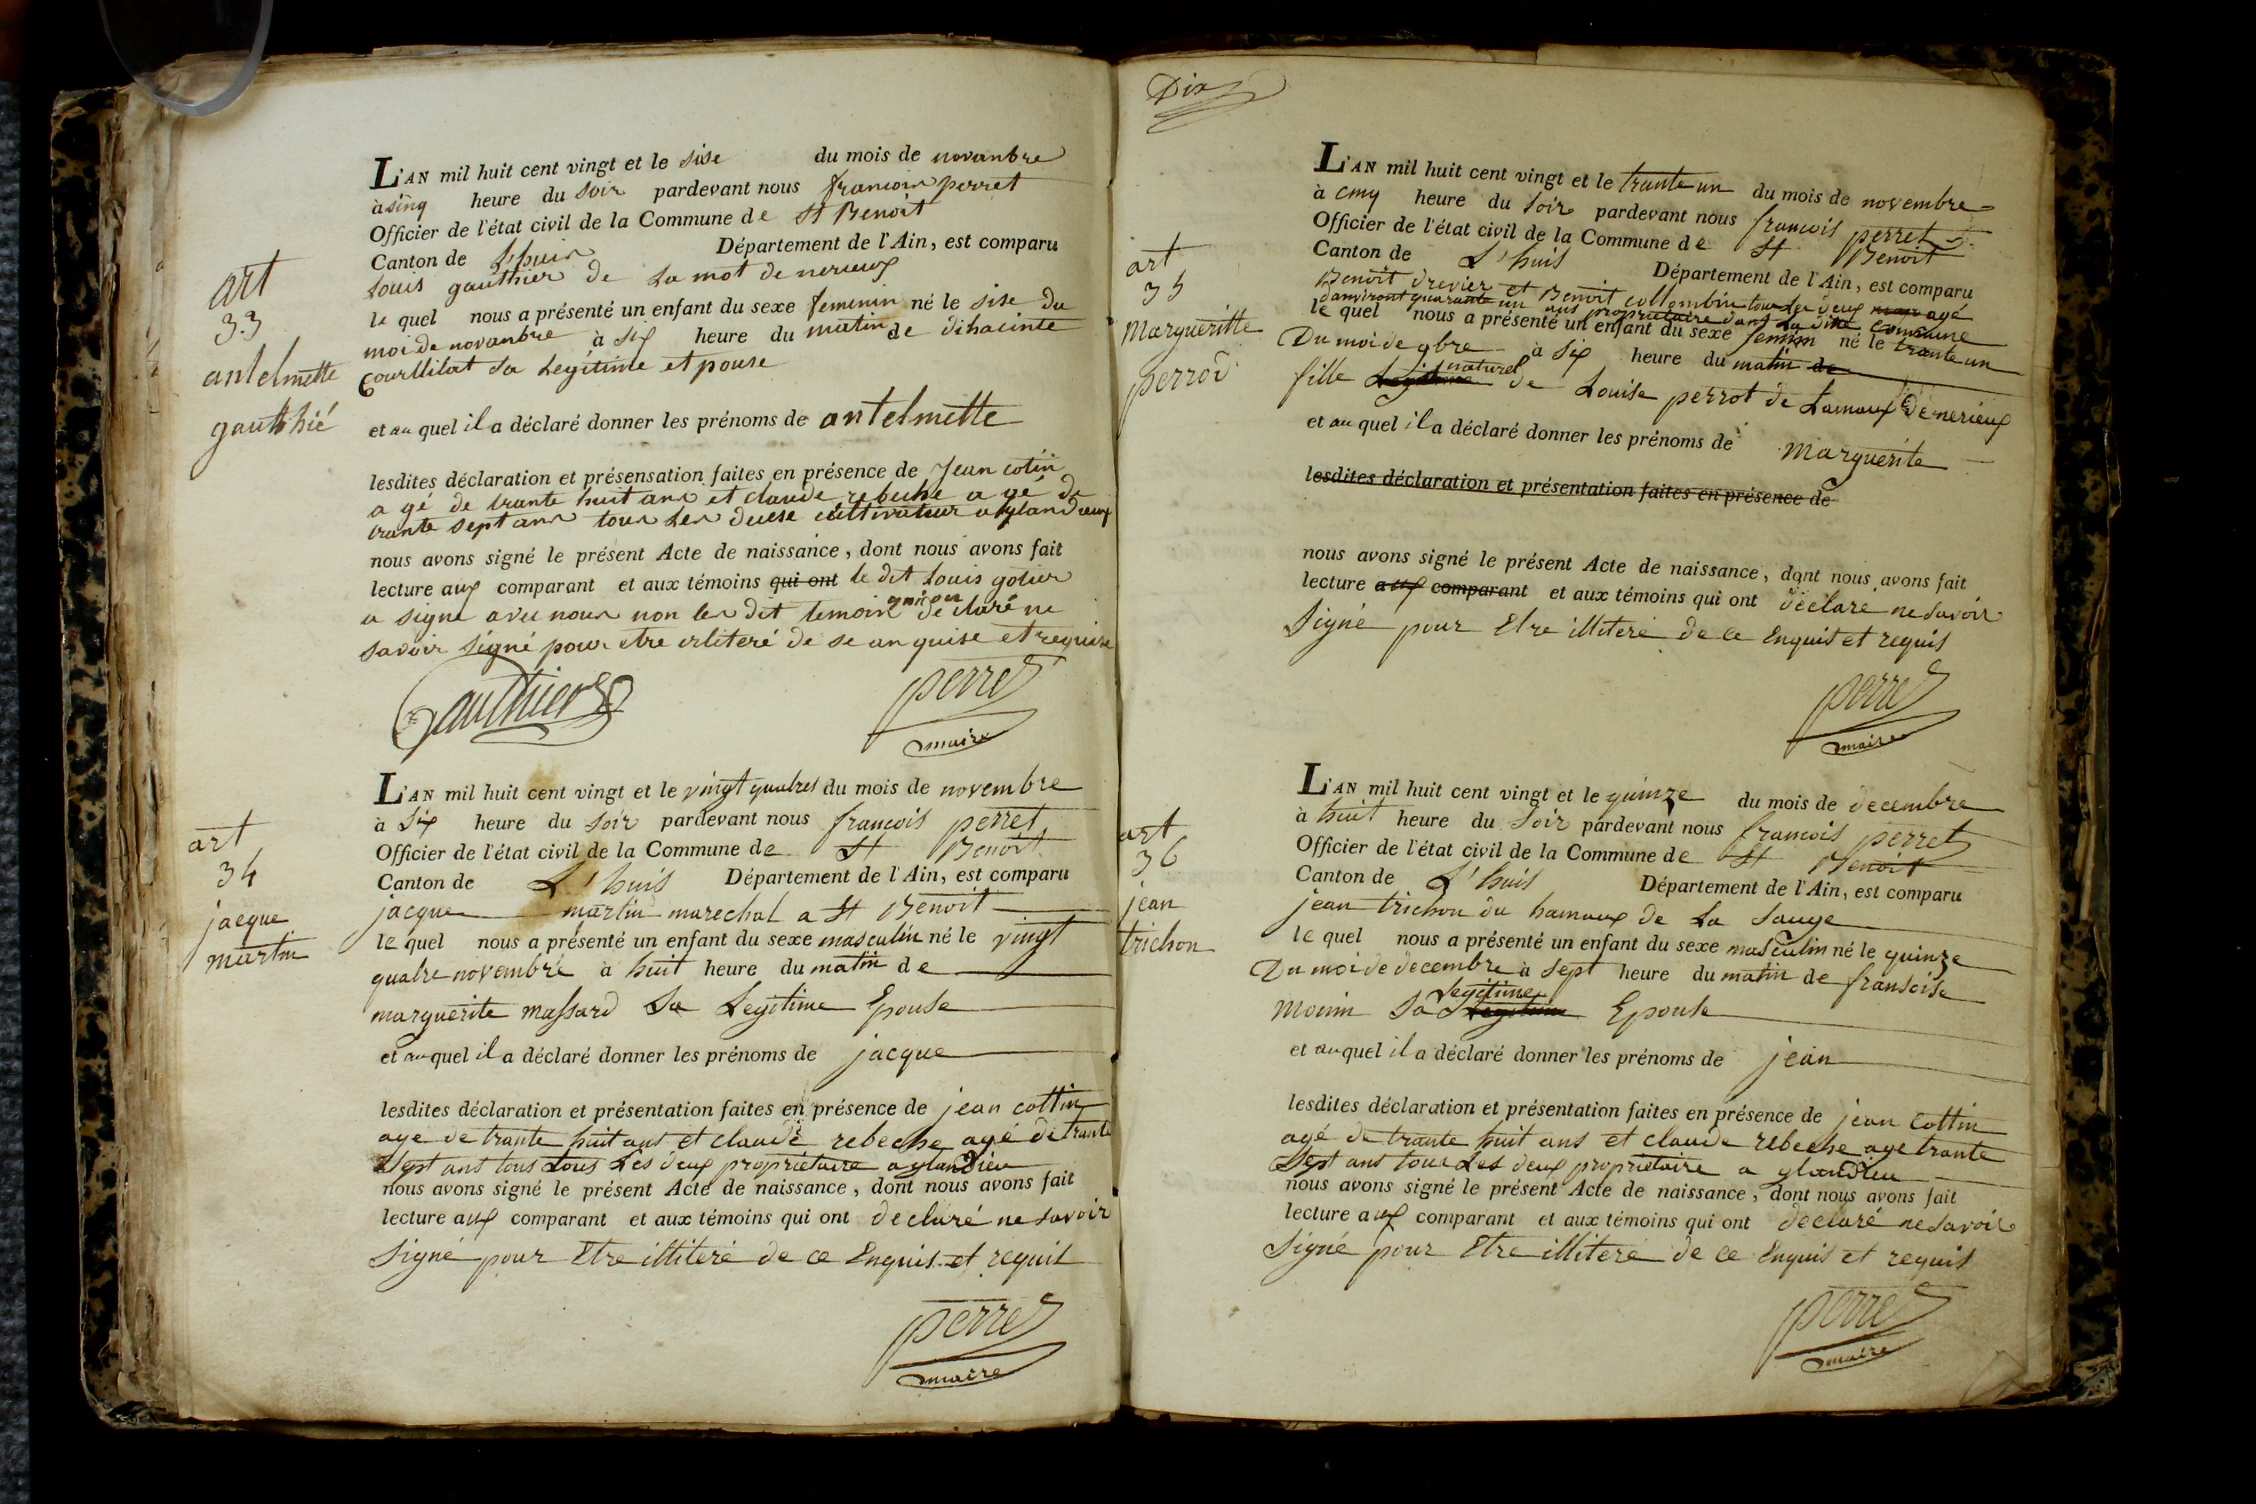 art
33
antelmette
gauthié
L'AN mil huit cent vingt et le sise du mois de novanbre
à sinq heure du soir pardevant nous francois perret
Officier de l'état civil de la Commune de St Benoit
Canton de L'huis Département de l'Ain, est comparu
Louis gauthier de La mot de nerieux
le quel nous a présenté un enfant du sexe feminin né le sise du
moi de novanbre à six heure du matin de dihacinte
Courllitat sa Legitime et pouse
et au quel il a déclaré donner les prénoms de antelmette
lesdites déclaration et présensation faites en présence de Jean cotin
a gé de trante huit ans et claude rebeche a gé de
trante sept ans tous Les deuse cultivateur a glandieux
nous avons signé le présent Acte de naissance, dont nous avons fait
lecture aux comparant et aux témoins qui ont le dit Louis gotier
a signé avec nous non les dit temoin déclaré ne
savoir signé pour etre irliteré de se anquise et requise
Gauthier
perret
maire
art
34
jacque
martin
L'AN mil huit cent vingt et le vingt quatres du mois de novembre
à Six heure du Soir pardevant nous francois perret
Officier de l'état civil de la Commune de St Benoit
Canton de L'huis Département de l'Ain, est comparu
jacque martin marechal a St Benoit
le quel nous a présenté un enfant du sexe masculin né le vingt
quatre novembre à huit heure du matin de
marguerite massard Sa Legitime Epouse
et au quel il a déclaré donner les prénoms de jacque
lesdites déclaration et présentation faites en présence de jean cottin
age de trante huit ans et claude rebeche agé de trante
Sept ans tous tous Les deux propriétaire a glandieu
nous avons signé le présent Acte de naissance, dont nous avons fait
lecture aux comparant et aux témoins qui ont declaré ne savoir
Signé pour Etre illiteré de ce Enquis et requis
perret
maire
Dix
art
35
Margueritte
perrod
L'AN mil huit cent vingt et le trante un du mois de novembre
à cinq heure du Soir pardevant nous francois perret
Officier de l'état civil de la Commune de St Benoit
Canton de L'huis Département de l'Ain, est comparu
Benoit drevier et Benoit collombin tous Les deux agé
d'anviront quarante un ans propriétaire dans La dite commune
le quel nous a présenté un enfant du sexe feminin né le trante un
Du moi de 9bre à Six heure du matin de
naturel
fille Legitime de Louise perrot de Lamoux de nerieux
et au quel il a déclaré donner les prénoms de Marguerite
lesdites déclaration et présentation faites en présence de
nous avons signé le présent Acte de naissance, dont nous avons fait
lecture aux comparant et aux témoins qui ont déclaré ne savoir
Signé pour Etre illiteré de ce Enquis et requis
perret
maire
art
36
jean
trichon
L'AN mil huit cent vingt et le quinze du mois de decembre
à huit heure du Soir pardevant nous francois perret
Officier de l'état civil de la Commune de St Benoit
Canton de L'huis Département de l'Ain, est comparu
jean trichon du hamaux de La Sauge
le quel nous a présenté un enfant du sexe masculin né le quinze
Du moi de decembre à Sept heure du matin de fransoise
Legitime
Monin Sa Legitime Epouse
et au quel il a déclaré donner les prénoms de jean
lesdites déclaration et présentation faites en présence de jean Cottin
agé de trante huit ans et claude rebeche age trante
Sept ans tous Les deux propriétaire a glandieu
nous avons signé le présent Acte de naissance, dont nous avons fait
lecture aux comparant et aux témoins qui ont declaré ne savoir
Signé pour Etre illiteré de ce Enquis et requis
perret
maire